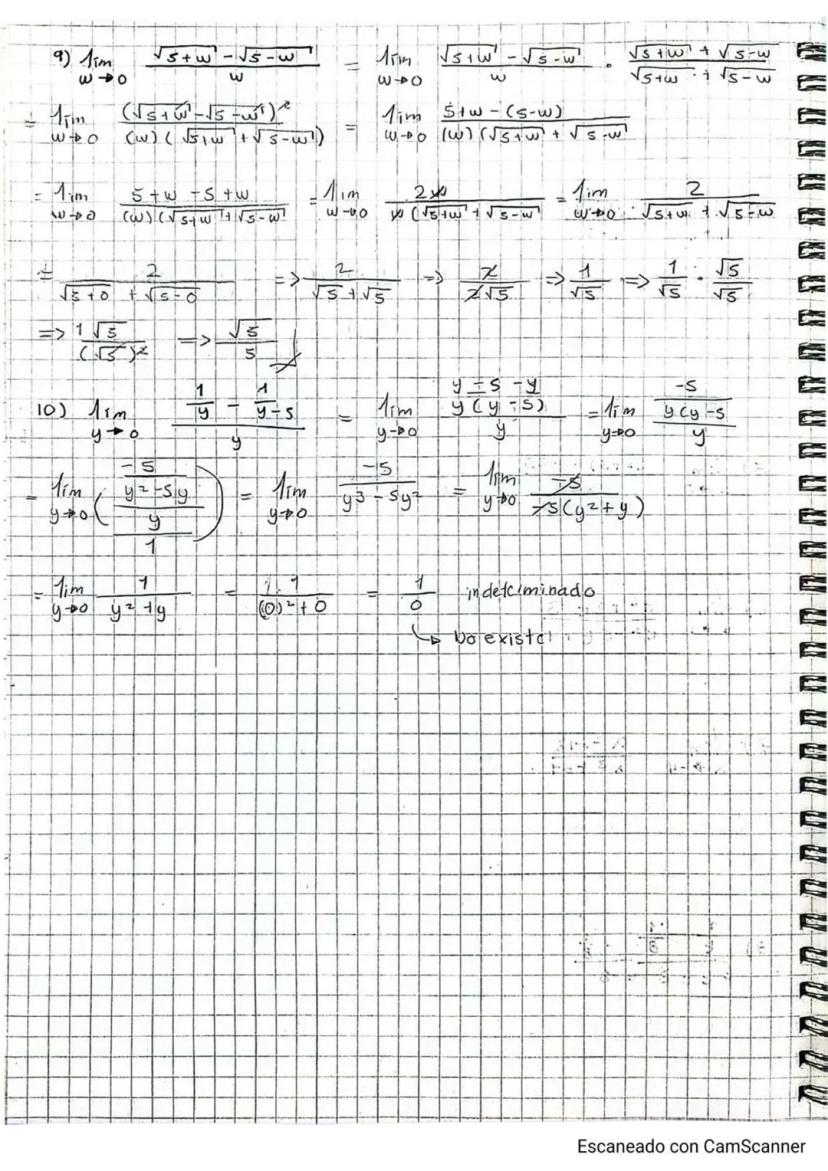 9) lim w→0 (√(5+w) - √(5-w))/w = lim w→0 (√(5+w) - √(5-w))/w · (√(5+w) + √(5-w))/(√(5+w) + √(5-w))
= lim w→0 (√(5+w) - √(5-w))²/((w)(√(5+w) + √(5-w))) = lim w→0 (5+w-(5-w))/((w)(√(5+w) + √(5-w)))
= lim w→0 (5+w-5+w)/((w)(√(5+w) + √(5-w))) = lim w→0 2w/(w(√(5+w) + √(5-w))) = lim w→0 2/(√(5+w) + √(5-w))
= 2/(√(5+0) + √(5-0)) => 2/(√5+√5) => 2/(2√5) => 1/√5 => 1/√5 · √5/√5
=> 1√5/(√5)² => √5/5
10) lim y→0 (1/y - 1/(y-5))/y = lim y→0 ((y-5-y)/(y(y-5)))/y = lim y→0 (-5/(y(y-5))/y
= lim y→0 ((-5/(y²-5y))/(y/1)) = lim y→0 -5/(y³-5y²) = lim y→0 -5/(-5(y²+y))
= lim y→0 1/(y²+y) = 1/((0)²+0) = 1/0 indeterminado
↳ No existe
Escaneado con CamScanner